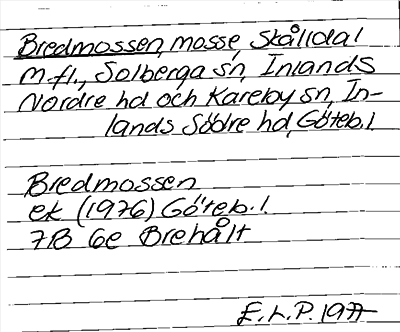 Bredmossen, mosse, Skålldal
m.fl., Solberga sn, Inlands
Nordre hd och Kareby sn, In-
lands Södre hd, Göteb. l.
Bredmossen
ek (1976) Göteb. l.
7B 6e Brehålt
E.L.P. 1977